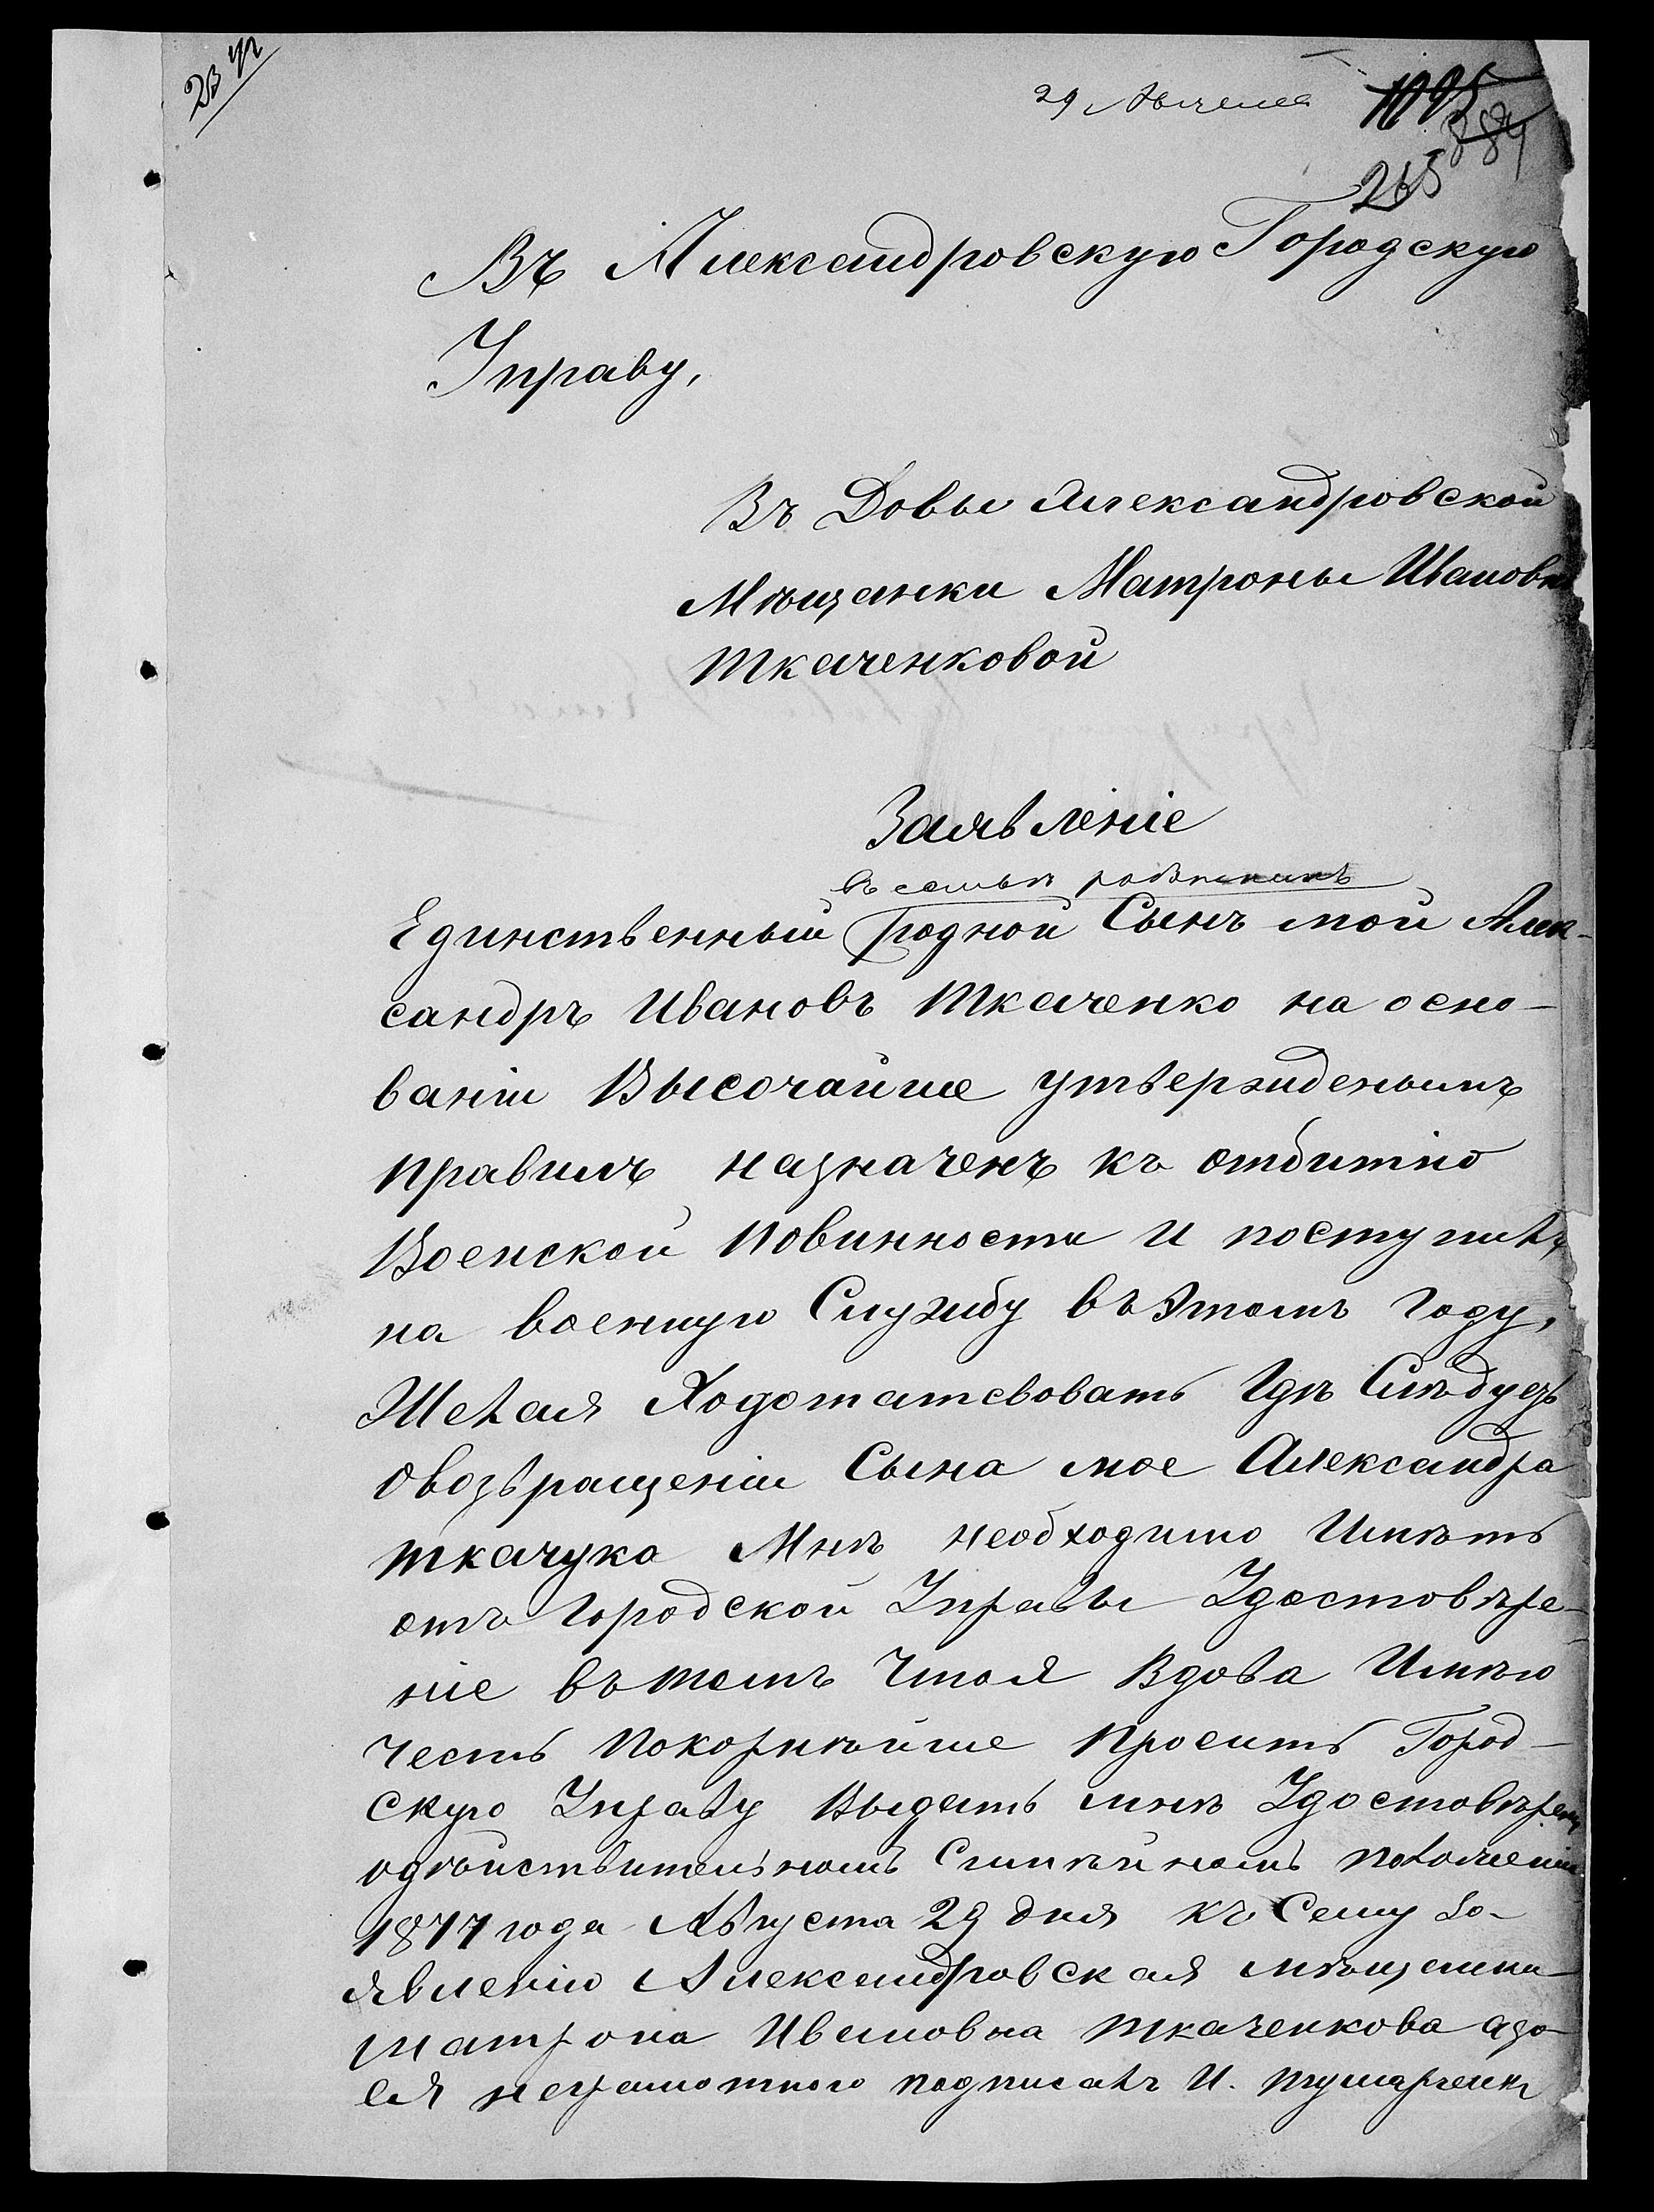 29 Августа 1095
884
265
Въ Александровскую Городскую
Управу,
Въ Довы Александровской
Мѣщанки Матроны Ивановн
Ткаченковой
Заявленіе
въ семьѣ работникъ
Единственный родной Сынъ мой Алек-
сандръ Ивановъ Ткаченко на осно-
ваніи Высочайше утвержденымъ
правилъ назначенъ къ отбитію
Военской повинности и поступилъ
на военную Службу въ Этомъ году,
Желая Ходотатсвовать Гдѣ Слѣдуеъ
овозвращеніи Сына мое Александра
ткачука Мнѣ необходимо Имѣть
отъ Городской Управы Удостовѣре-
ніе въ томъ Чтоя Вдова Имѣю
честь Покорнѣйше просить Город-
скую Управу Выдать мнѣ Удостовѣрен
одѣйствительномъ Симѣйномъ положеніи
1877 года Августа 29 дня къ Сему Зо-
явленію Александровская мѣщанка
матрона Ивановна ткаченкова азо
ея неграмотного подписалъ И.